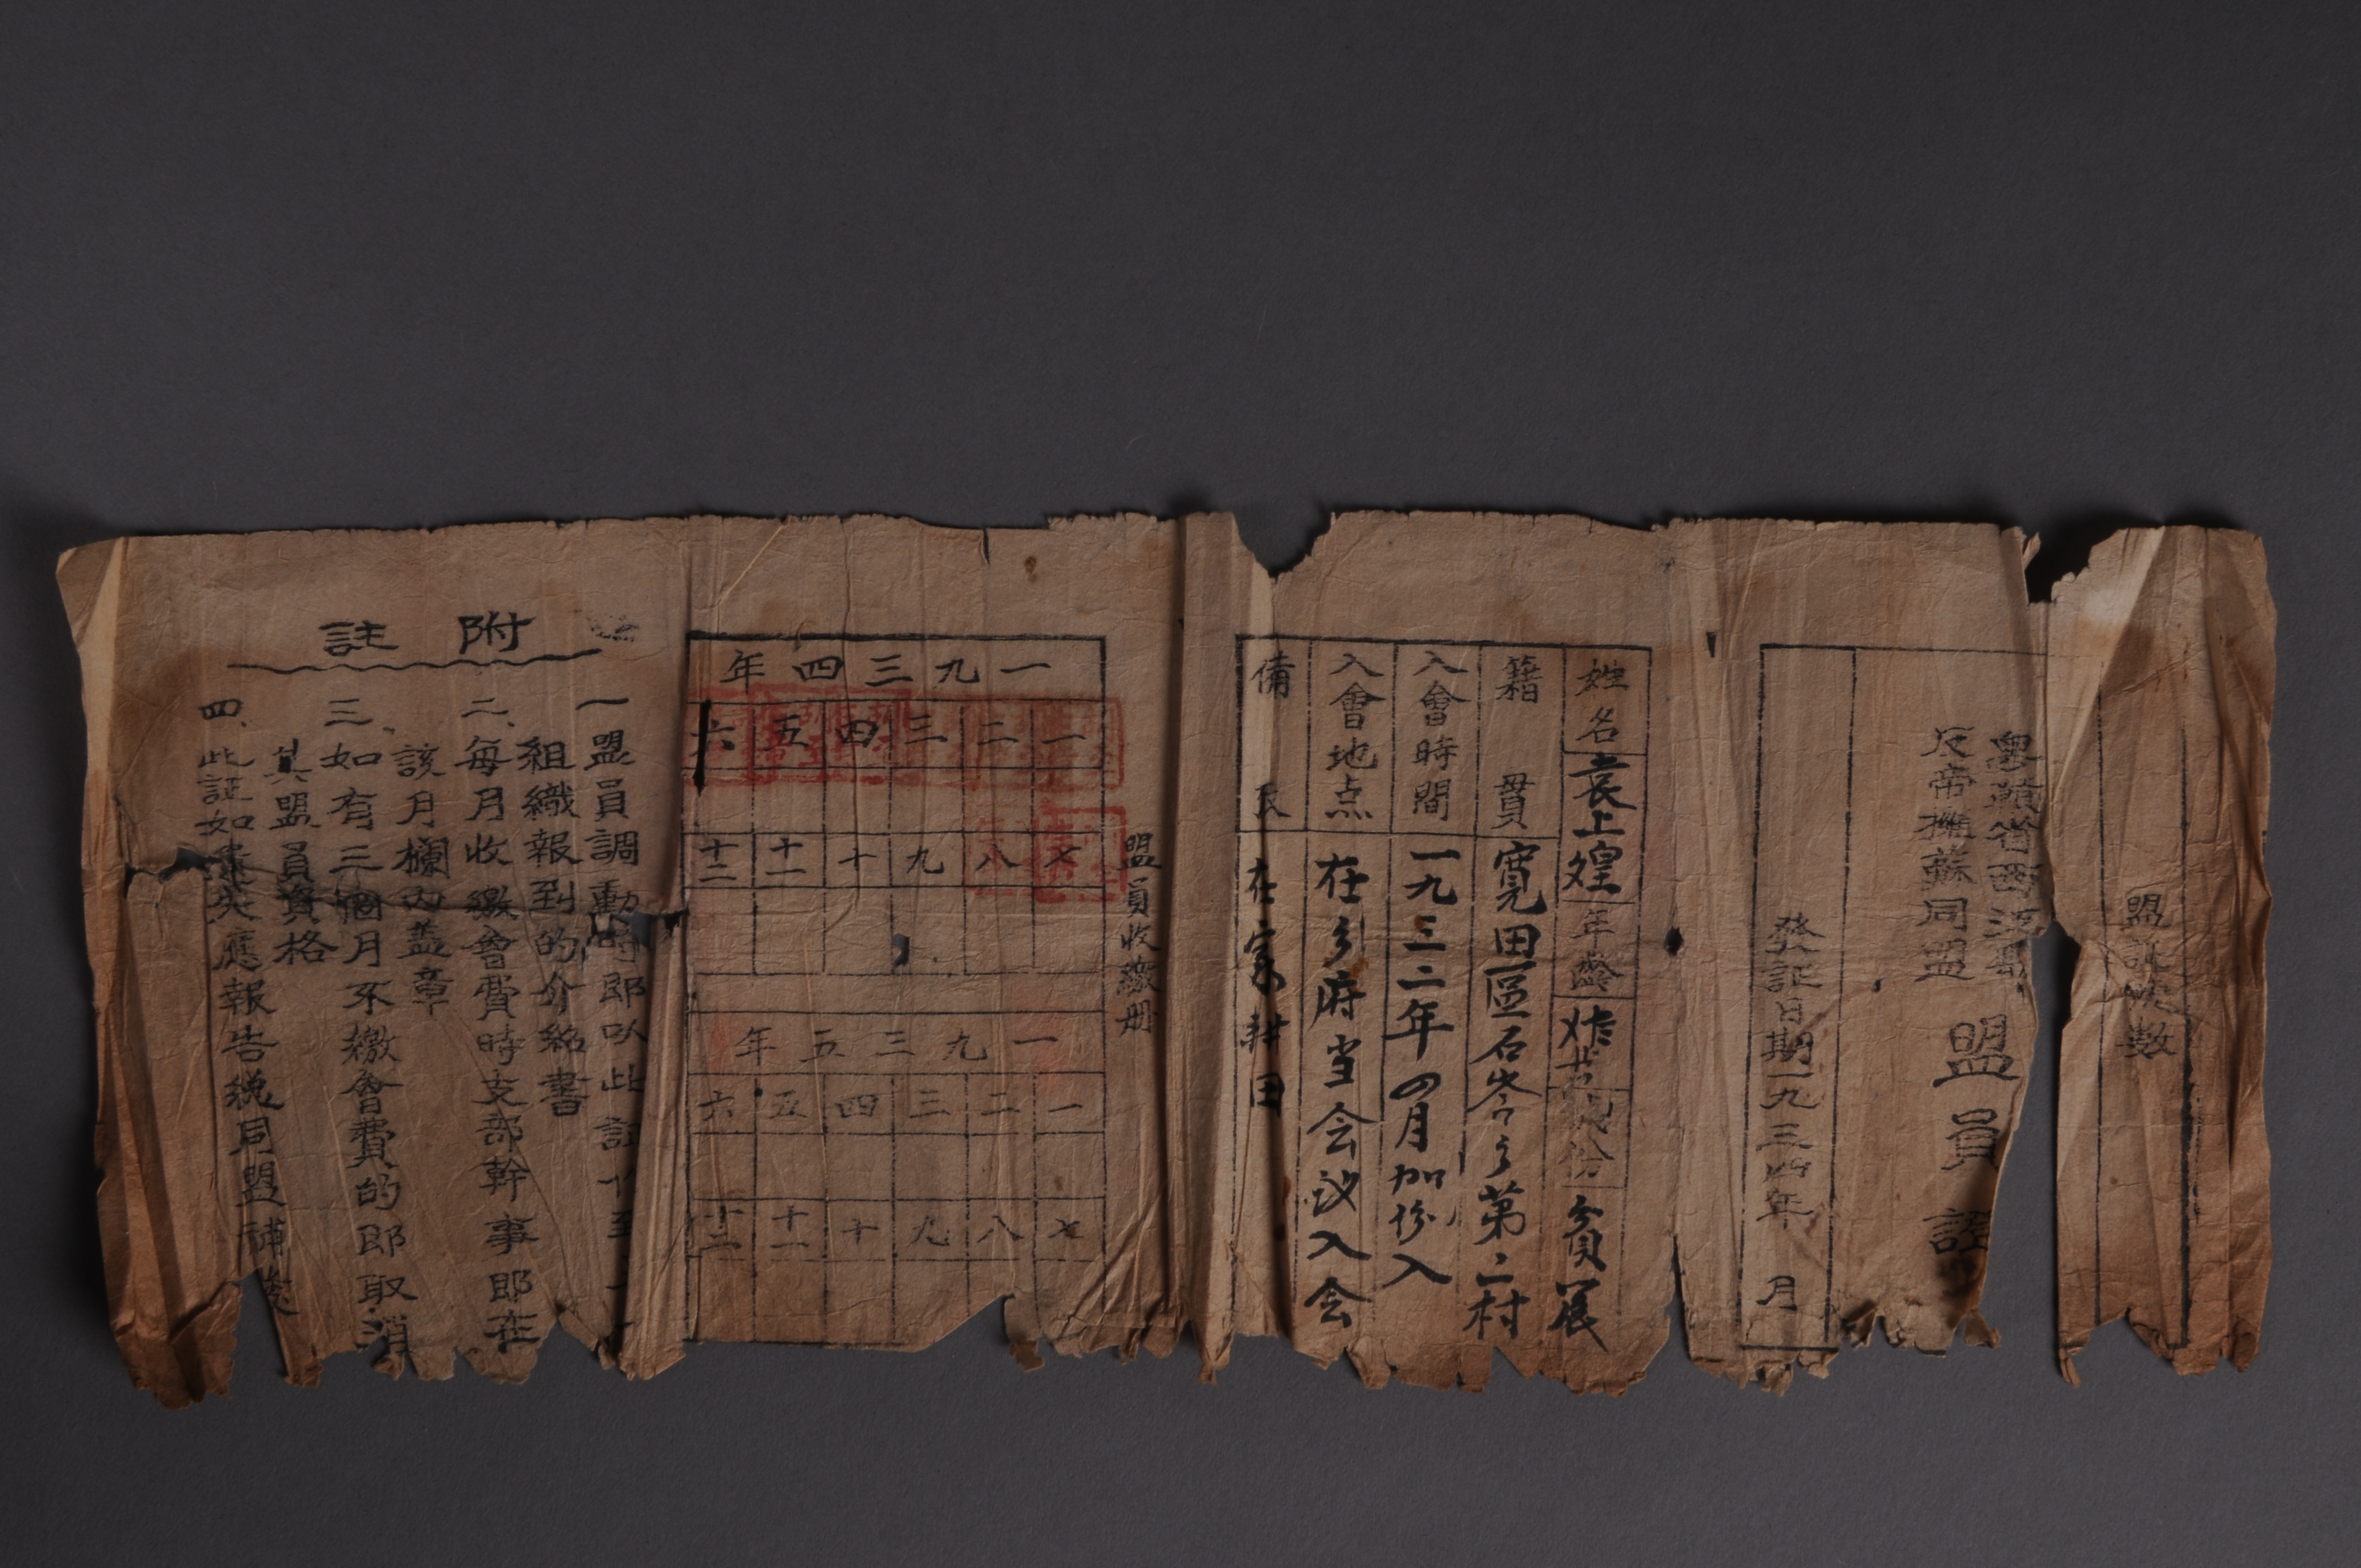 粵贛省西江縣
反帝擁蘇同盟
盟員證
發証日期一九三四年 月
姓名 袁上煌 年齡 份 貧農
籍貫 寬田區石岑鄉第二村
入會時間 一九三二年四月加份入
入會地点 在鄉府当会议入会
備 在家耕田
盟員收繳册
一九三四年
一 二 三 四 五 六
七 八 九 十 十一 十二
一九三五年
一 二 三 四 五 六
七 八 九 十 十一 十二
附註
一盟員調動時即以此証
組織報到的介紹書
二、每月收繳會費時支部幹事即在
該月欄内盖章
三、如有三個月不繳會費的即取消
其盟員資格
四、此証如 失應報告總同盟補